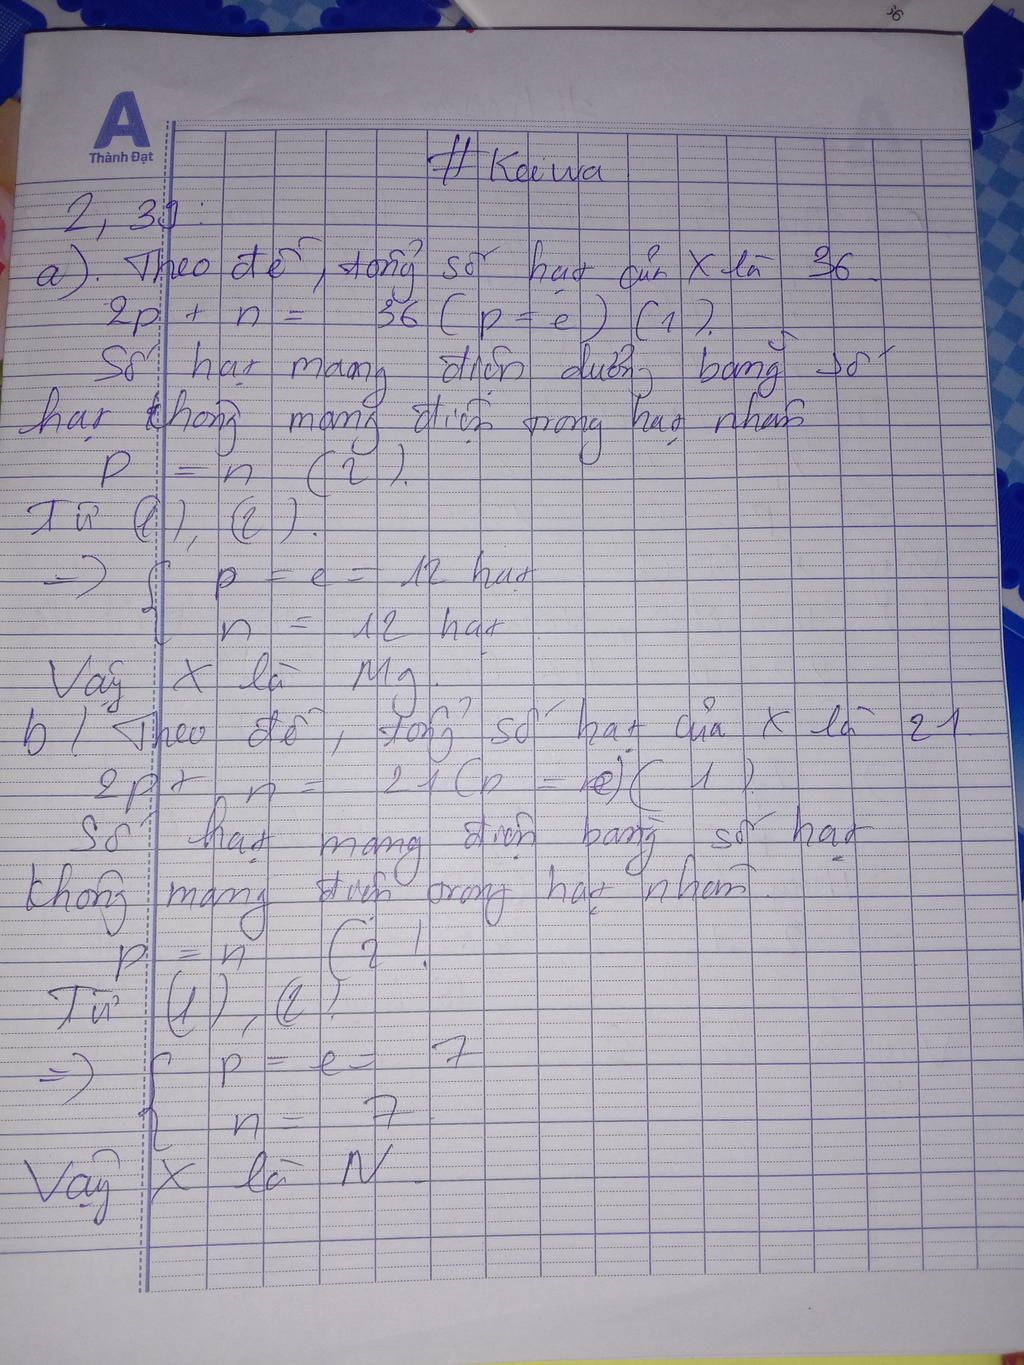 36
A
Thành Đạt
# Keiwa
2, 39:
a). Theo đề, tổng số hạt của X là 36
2p + n = 36 (p = e) (1).
Số hạt mang điện dương bằng số
hạt không mang điện trong hạt nhân
p = n (2).
Từ (1), (2).
=> { p = e = 12 hạt
n = 12 hạt
Vậy X là Mg.
b / Theo đề, tổng số hạt của X là 21
2p + n = 21 (p = e) (1)
Số hạt mang điện bằng số hạt
không mang điện trong hạt nhân
p = n (2).
Từ (1), (2)
=> { p = e = 7
n = 7.
Vậy X là N